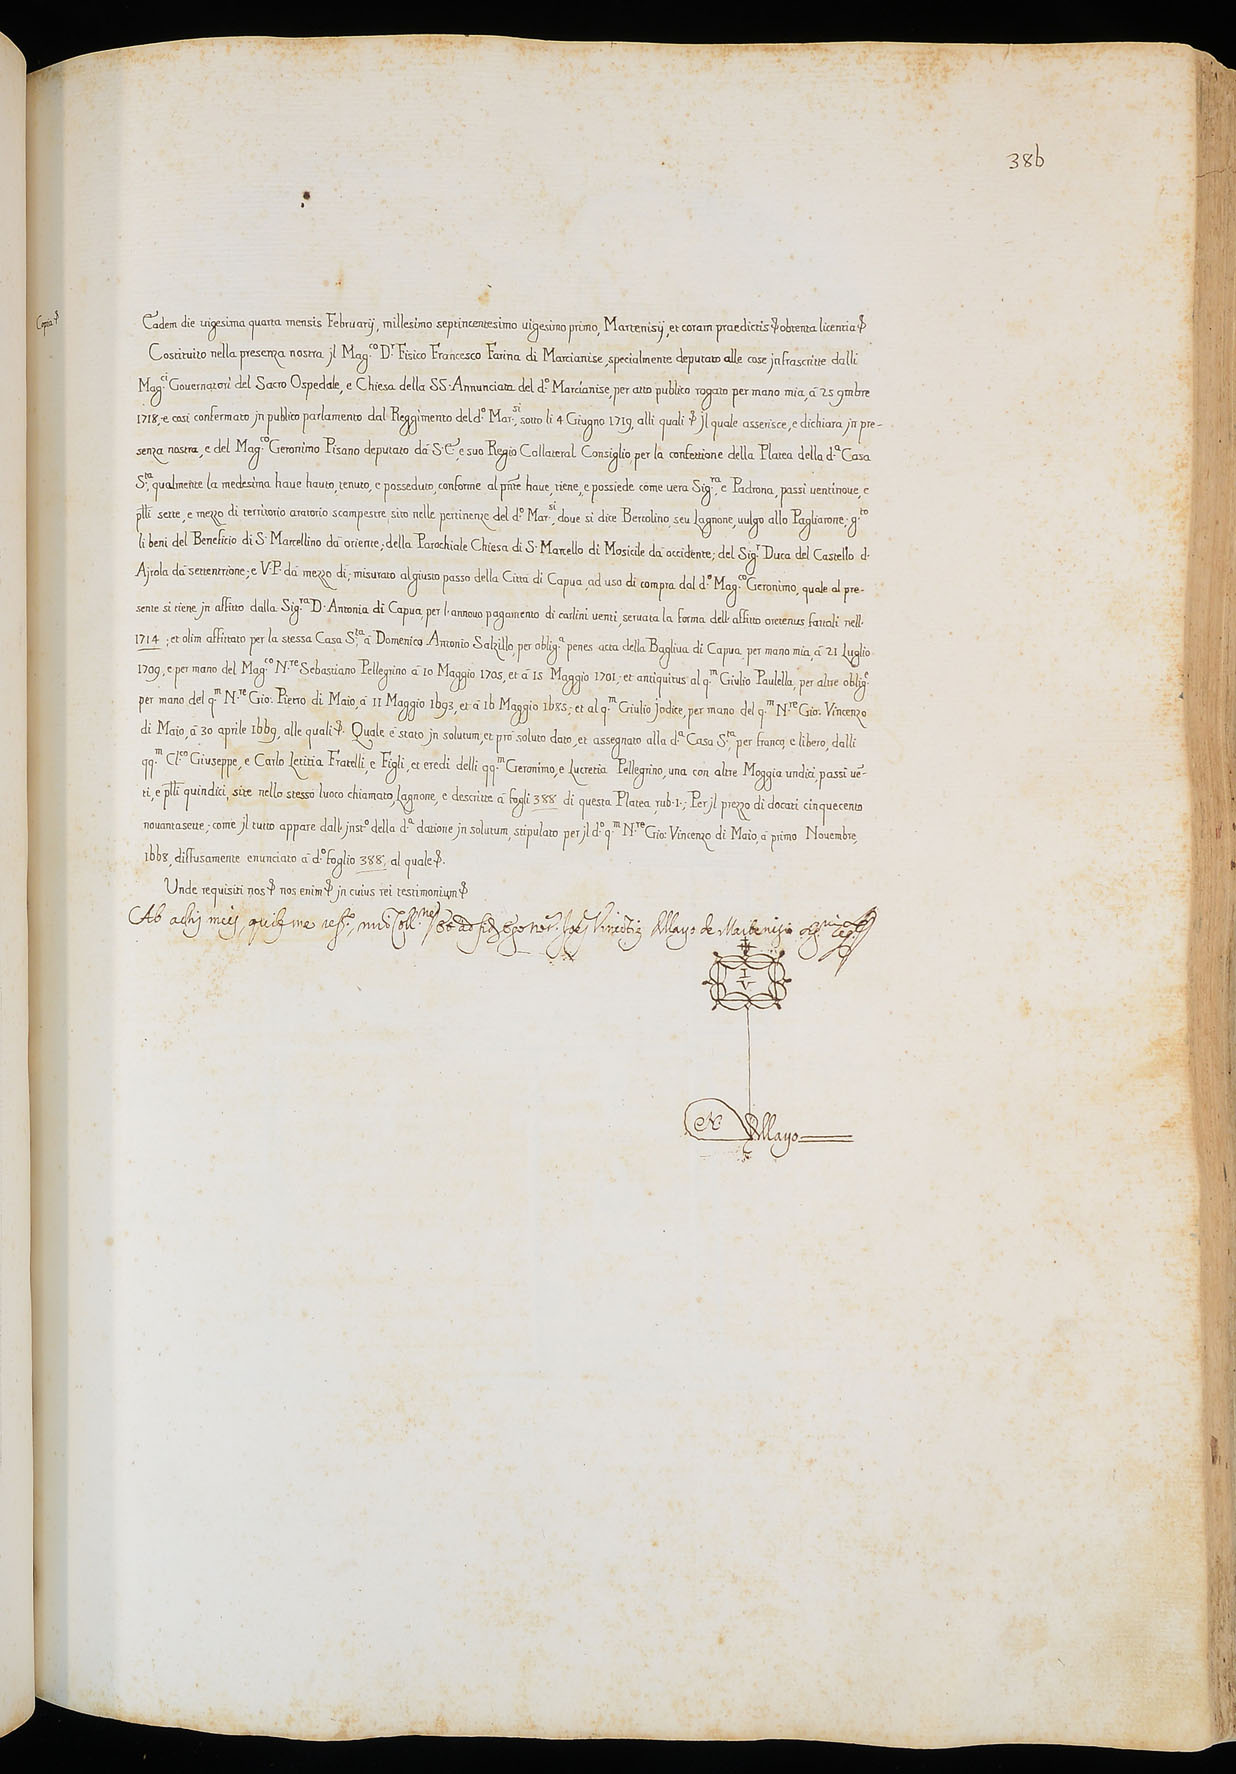 386
Copia
Eadem die uigesima quarta mensis Februarij, millesimo septincentesimo uigesimo primo, Martenisij, et coram praedictis & obtenta licentia &
Costituito nella presenza nostra jl Mag.co D.r Fisico Francesco Farina di Marcianise, specialmente deputato alle cose jnfrascritte dalli
Mag.ci Gouernatori del Sacro Ospedale, e Chiesa della SS. Annunciata del d.o Marcianise, per atto publico rogato per mano mia, à 25 9mbre
1718, e cosi confermato jn publico parlamento dal Reggimento del d.o Mar.si, sotto li 4 Giugno 1719, alli quali & jl quale asserisce, e dichiara jn pre-
senza nostra, e del Mag.co Geronimo Pisano deputato dà S. E., e suo Regio Collateral Consiglio per la confettione della Platea della d.a Casa
S.ta, qualmente la medesima haue hauto, tenuto, e posseduto, conforme al pnte haue, tiene, e possiede come uera Sig.ra, e Padrona, passi uentinoue, e
plli sette, e mezzo di territorio aratorio scampestre, sito nelle pertinenze del d.o Mar.si, doue si dice Bertolino, seu Lagnone, uulgo allo Pagliarone; g.to
li beni del Beneficio di S. Marcellino dà oriente; della Parochiale Chiesa di S. Marcello di Mosicile dà occidente; del Sig.r Duca del Castello d.
Ajrola dà settentrione; e V.P. dà mezzo dì; misurato al giusto passo della Città di Capua, ad uso di compra dal d.o Mag.co Geronimo, quale al pre-
sente si tiene jn affitto dalla Sig.ra D. Antonia di Capua, per l'annouo pagamento di carlini uenti, seruata la forma dell'affitto orctenus fattoli nell'
1714; et olim affittato per la stessa Casa S.ta à Domenico Antonio Salzillo, per oblig.a penes acta della Bagliua di Capua, per mano mia, à 21 Luglio
1709, e per mano del Mag.co N.re Sebastiano Pellegrino à 10 Maggio 1705, et à 15 Maggio 1701; et antiquitus al q.m Giulio Paulella, per altre oblig.e
per mano del q.m N.re Gio: Pietro di Maio, à 11 Maggio 1693, et à 16 Maggio 1685; et al q.m Giulio Jodice, per mano del q.m N.re Gio: Vincenzo
di Maio, à 30 aprile 1669, alle quali &. Quale è stato jn solutum, et prò soluto dato, et assegnato alla d.a Casa S.ta, per franco, e libero, dalli
qq.m Cl.co Giuseppe, e Carlo Letitia Fratelli, e Figli, et eredi delli qq.m Geronimo, e Lucretia Pellegrino, una con altre Moggia undici, passi ue-
ti, e plli quindici, site nello stesso luoco chiamato Lagnone, e descritte à fogli 388 di questa Platea, rub. 1.; Per jl prezzo di docati cinquecento
nouantasette; come jl tutto appare dall'jnst.o della d.a datione jn solutum, stipulato per jl d.o q.m N.re Gio: Vincenzo di Maio, à primo Nouembre,
1668, diffusamente enunciato à d.o foglio 388, al quale &.
Unde requisiti nos & nos enim & jn cuius rei testimonium &
Ab actis meis, Mayo de Martenisio
I
V
N Mayo